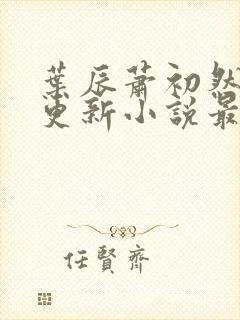 葉辰蕭初然
更新小說最
任賢齊